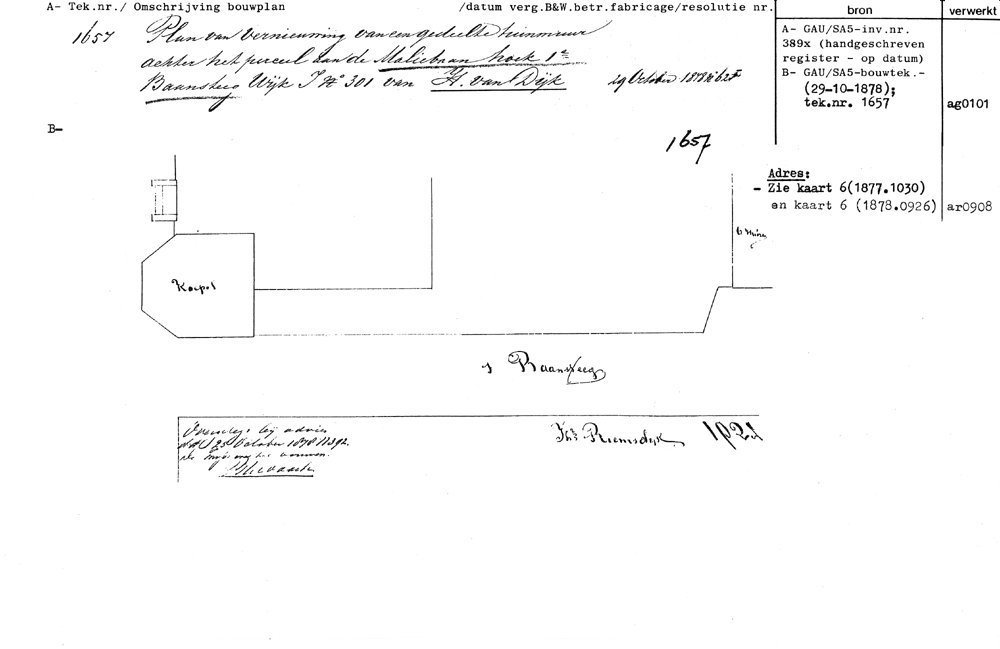 A- Tek.nr./ Omschrijving bouwplan /datum verg.B&W.betr.fabricage/resolutie nr.
1657 Plan van vernieuwing van een gedeelte tuinmuur
achter het perceel aan de Maliebaan hoek 1e
Baansteeg Wijk I No 301 van H. van Dijk 29 October 1878
bron
verwerkt
A- GAU/SA5-inv.nr.
389x (handgeschreven
register - op datum)
B- GAU/SA5-bouwtek.-
(29-10-1878);
tek.nr. 1657
ag0101
B-
1657
Adres:
- Zie kaart 6(1877.1030)
en kaart 6 (1878.0926)
ar0908
Koepel
Baansteeg
bij advies
25 October 1878
Riemsdijk